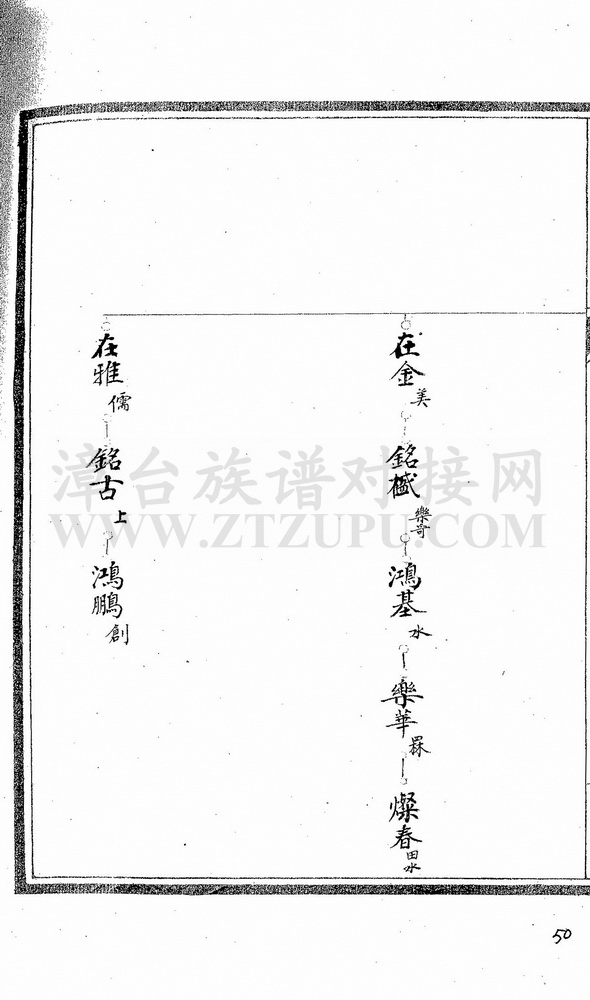 在金美
銘樾樂奇
鴻基水
樂華槑
燦春田水
在雅儒
銘古上
鴻鵬創
漳台族谱对接网
WWW.ZTZUPU.COM
50